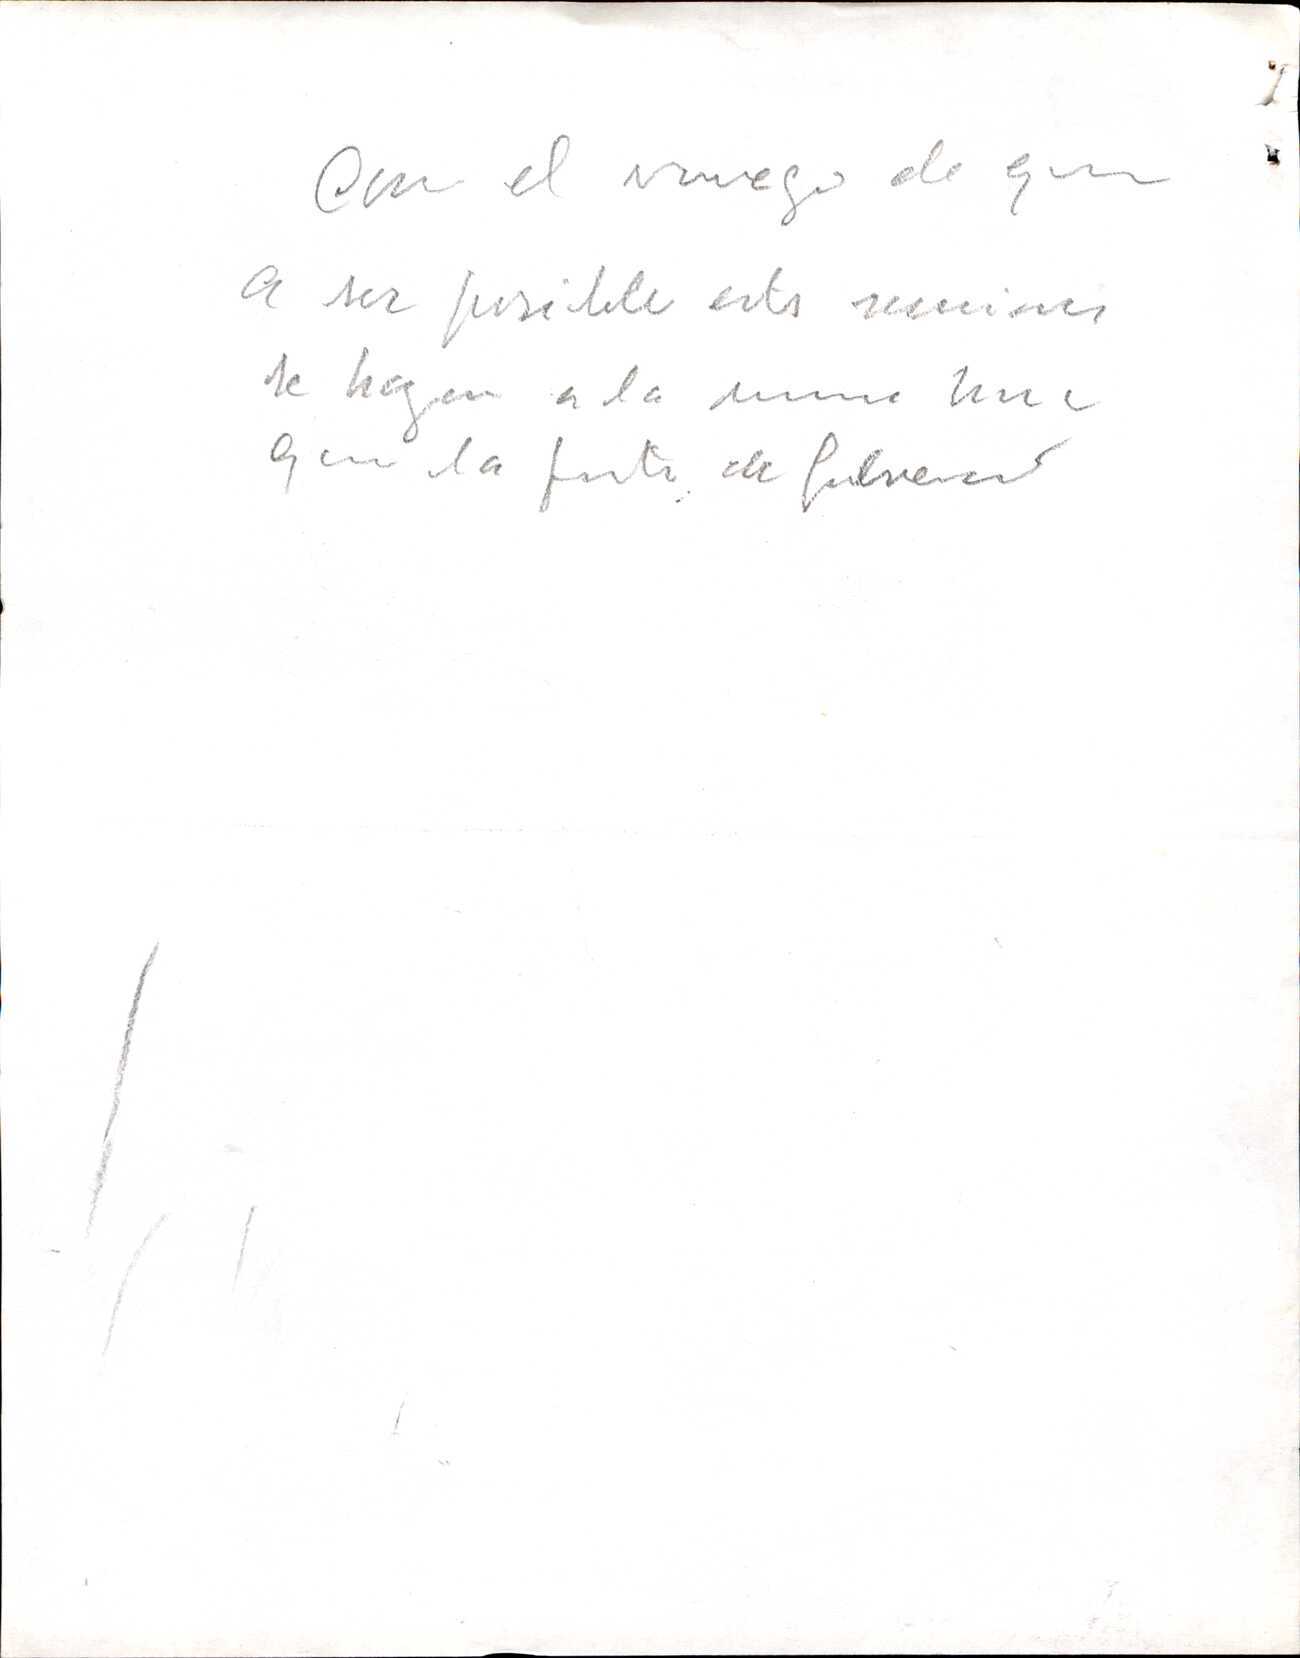 Con el ruego de que
a ser posible estas reuniones
se hagan a la misma hora
que la Junta de Gobierno